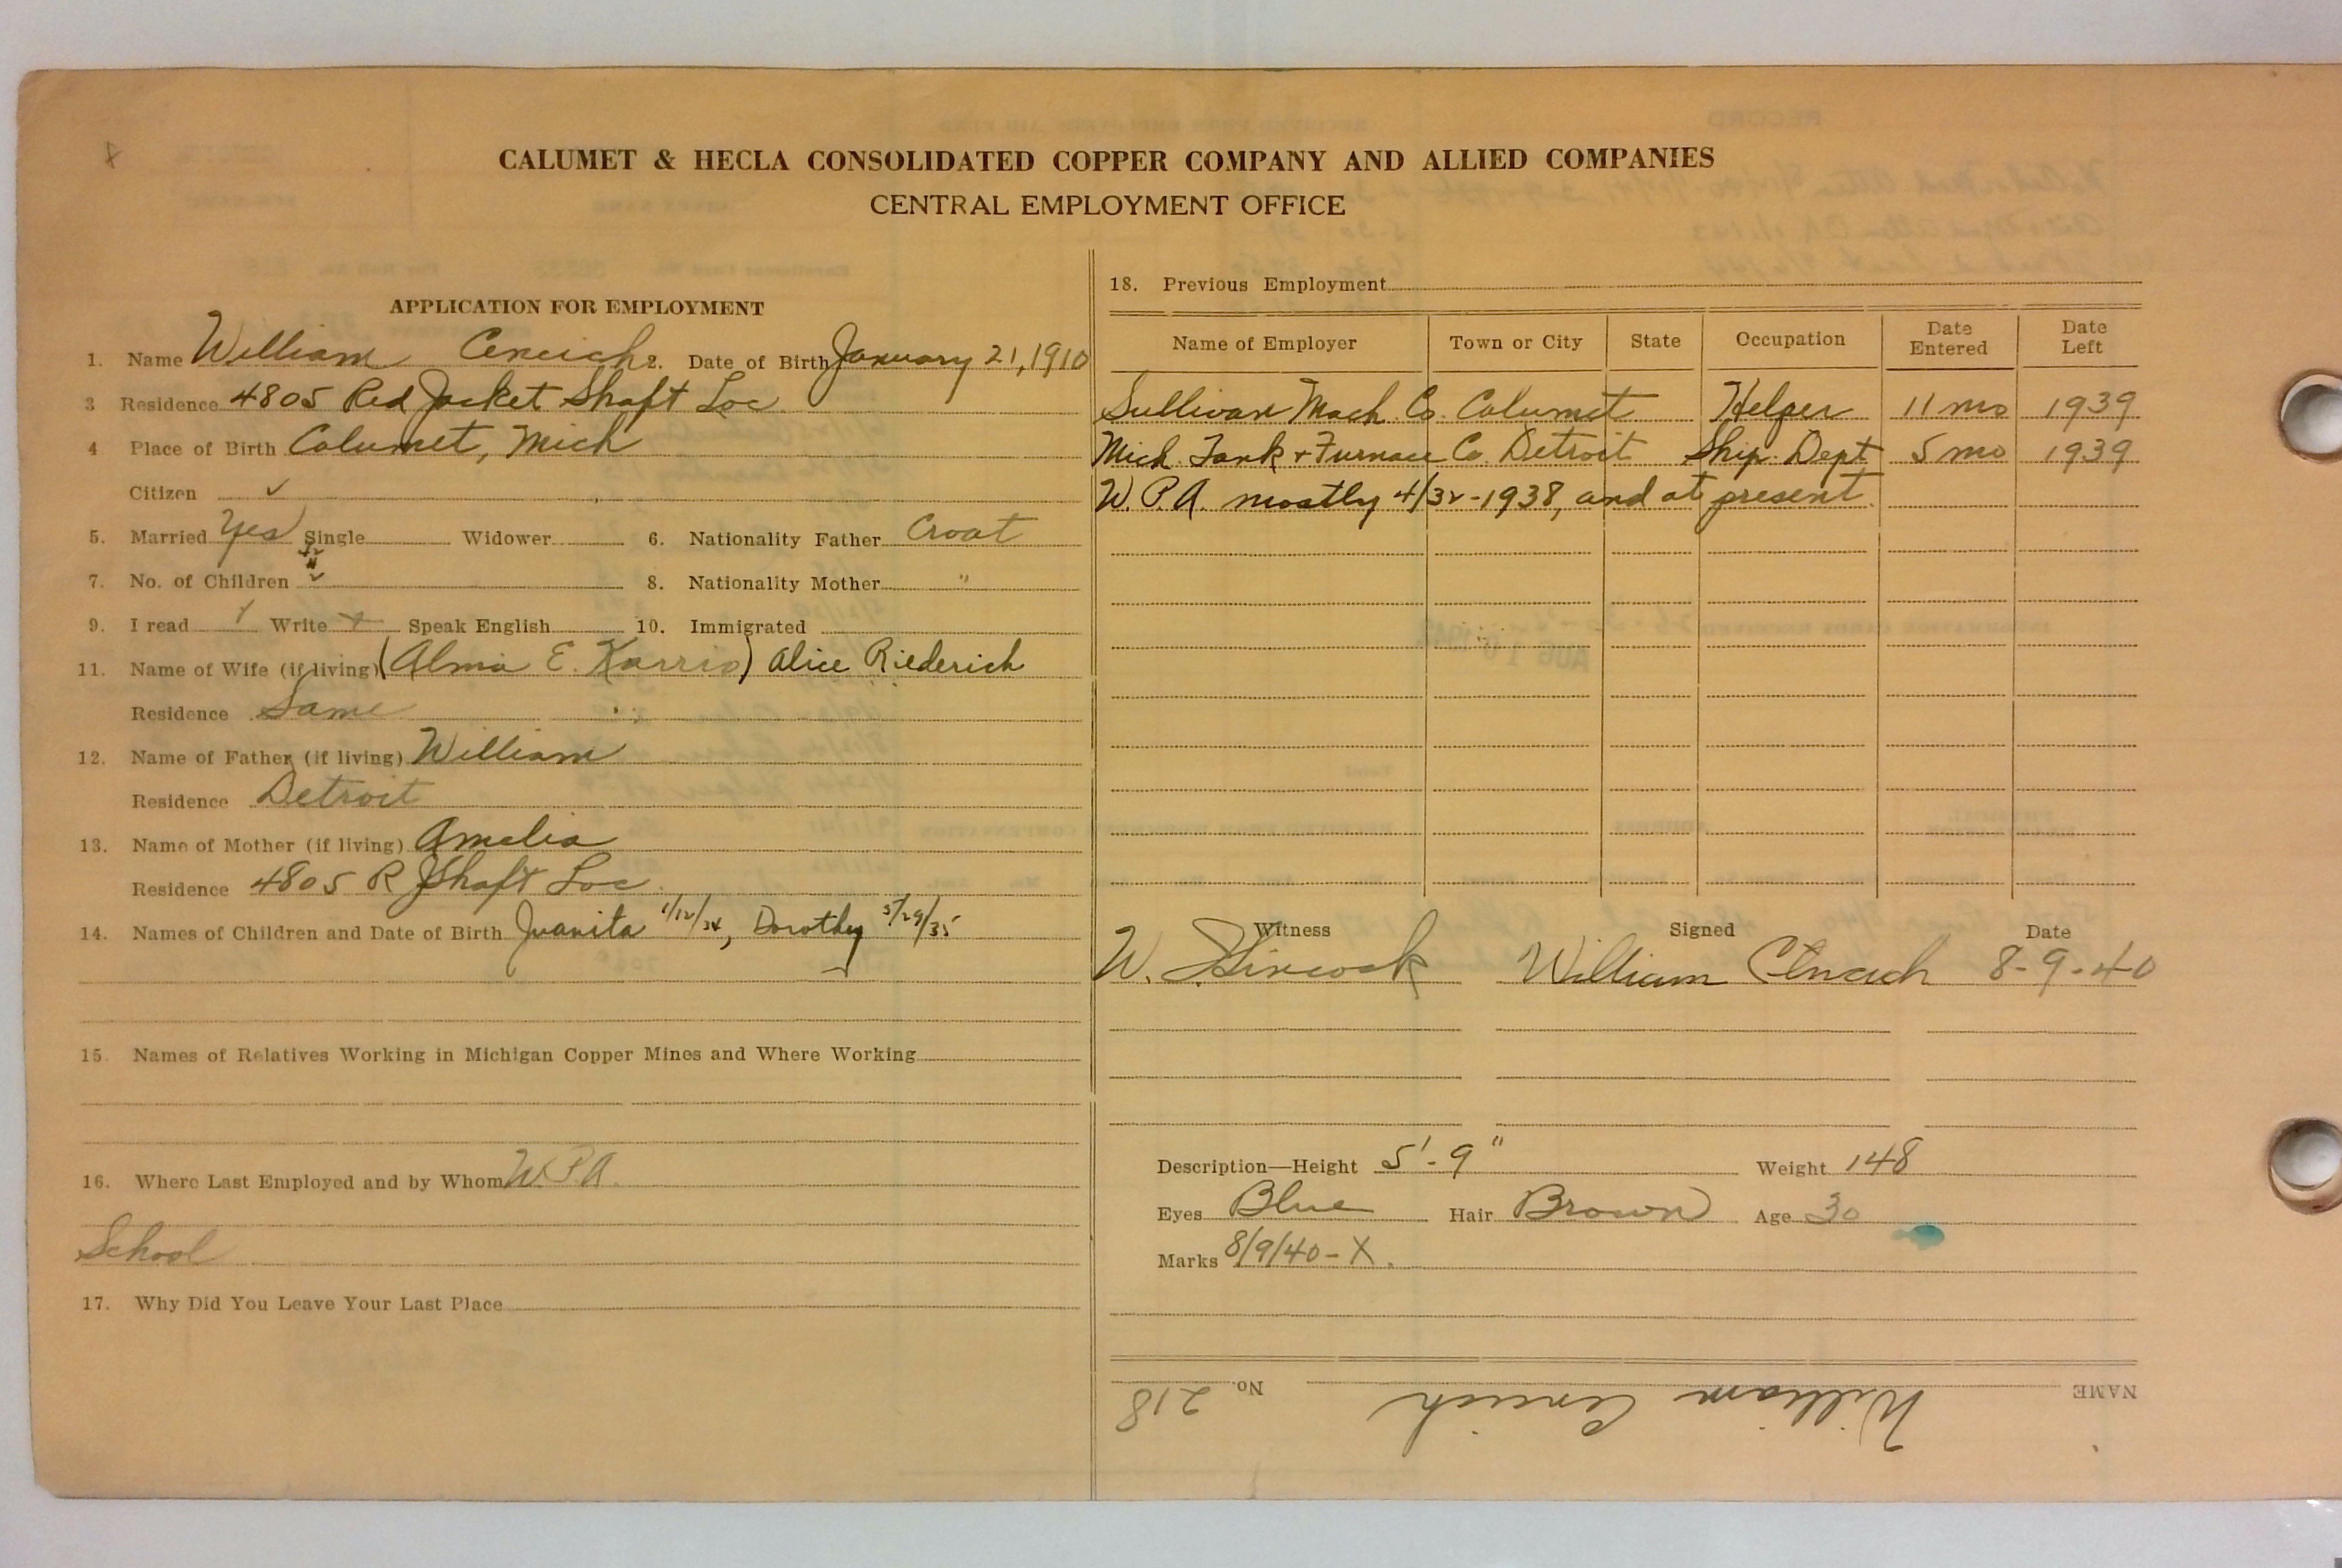 CALUMET & HECLA CONSOLIDATED COPPER COMPANY AND ALLIED COMPANIES
CENTRAL EMPLOYMENT OFFICE
APPLICATION FOR EMPLOYMENT
1. Name William 2. Date of Birth January 21, 1910
3 Residence 4805 Red Jacket Shaft Loc.
4 Place of Birth Calumet, Mich
Citizen ✓
5. Married Yes Single Widower 6. Nationality Father Croat
7. No. of Children 8. Nationality Mother "
9. I read Write Speak English 10. Immigrated
11. Name of Wife (if living) (Alma E. ) Alice Riederich
Residence Same
12. Name of Father (if living) William
Residence Detroit
13. Name of Mother (if living) Amelia
Residence 4805 R J Shaft Loc.
14. Names of Children and Date of Birth Juanita 1/12/34, Dorothy 5/29/35
15. Names of Relatives Working in Michigan Copper Mines and Where Working
16. Where Last Employed and by Whom W.P.A.
School
17. Why Did You Leave Your Last Place
18. Previous Employment
Name of Employer Town or City State Occupation Date Entered Date Left
Sullivan Mach. Co. Calumet Helper 11 mo 1939
Mich. Tank & Furnace Co. Detroit Ship. Dept 5 mo 1939
W.P.A. mostly 4/32-1938, and at present.
Witness Signed Date
W. William 8-9-40
Description—Height 5'-9" Weight 148
Eyes Blue Hair Brown Age 30
Marks 8/9/40-X.
NAME William No. 218